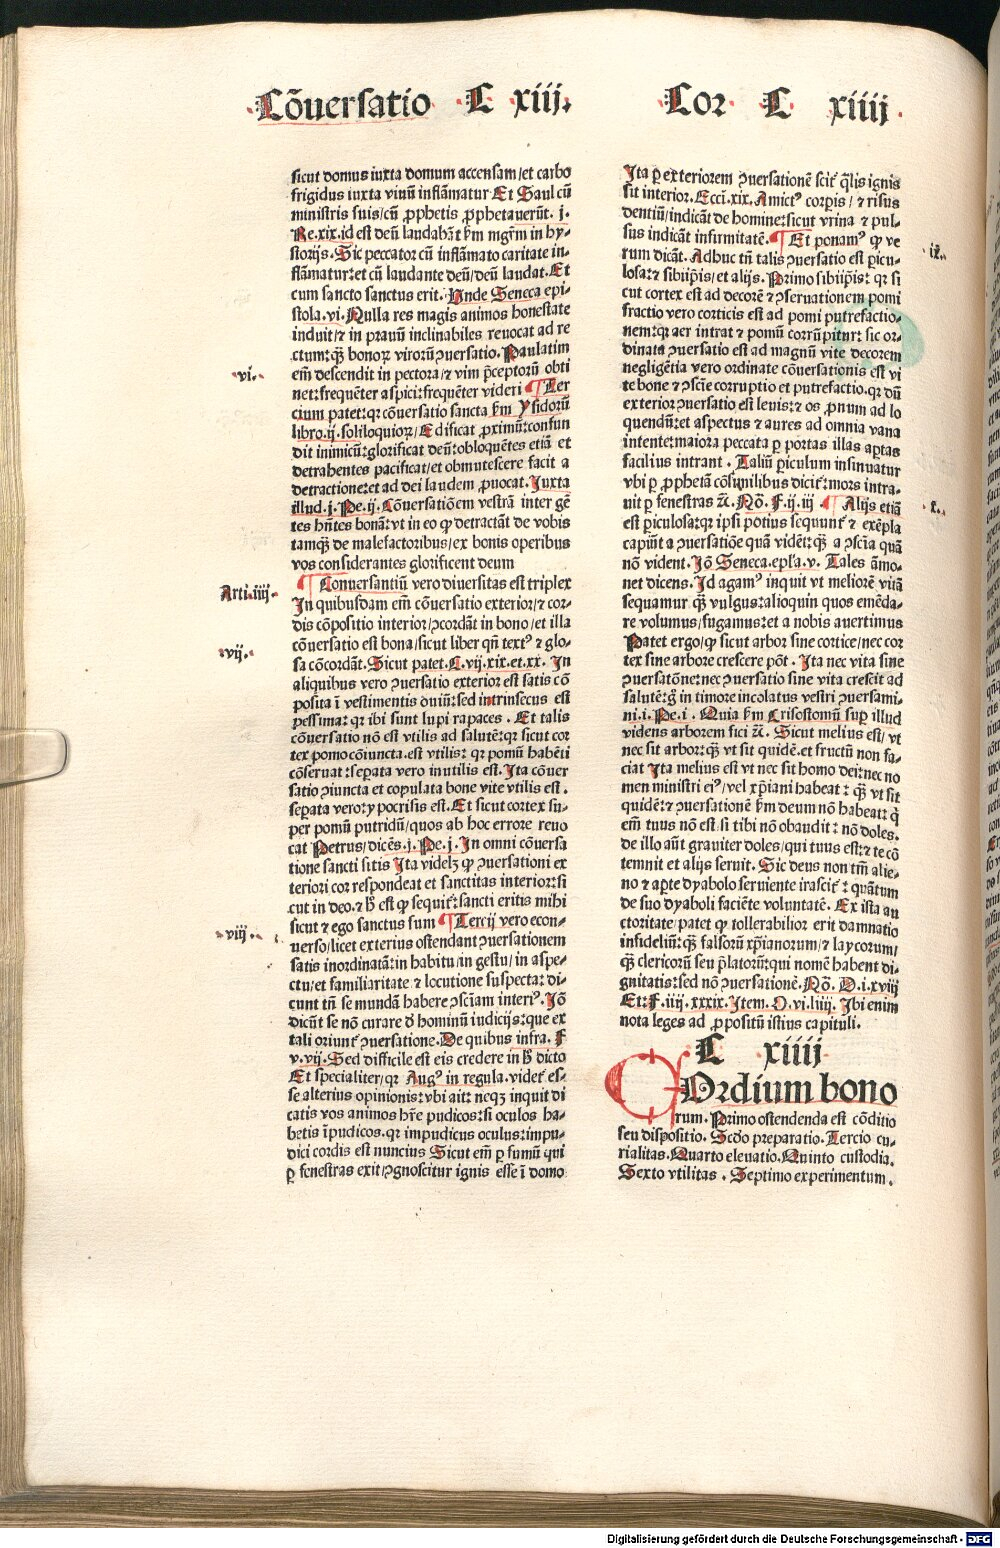 Cōuersatio C xiij.
sicut domus iuxta domum accensam/et carbo
frigidus iuxta viuū inflāmatur Et Saul cū
ministris suis/cū ꝓphetis ꝓphetauerūt. j.
Re.xix.id est deū laudabāt km mgr̄m in hy-
storijs. Sic peccator cū inflāmato caritate in-
flāmatur:et cū laudante deū/deū laudat. Et
cum sancto sanctus erit. Unde Seneca epi-
stola.vi. Nulla res magis animos honestate
induit/⁊ in prauū inclinabiles reuocat ad re
ctum:qꝫ bonoꝝ viroꝝ ꝯuersatio. Paulatim
em̄ descendit in pectora/⁊ vim p̄ceptorū obti
net:frequēter aspici:frequēter videri ¶ Ter
cium patet:qꝛ cōuersatio sancta km Ysidorū
libro.ij.soliloquioꝝ/Edificat ꝓximū:confun
dit inimicū:glorificat deū:obloquētes etiā et
detrahentes pacificat/et obmutescere facit a
detractione:et ad dei laudem ꝓuocat. Iuxta
illud.j. Pe.ij. Cōuersatiōem vestrā inter gē
tes hn̄tes bonā:vt in eo ꝙ detractāt de vobis
tamqꝫ de malefactoribus/ex bonis operibus
vos considerantes glorificent deum
¶ Conuersantiū vero diuersitas est triplex
In quibusdam em̄ cōuersatio exterior/⁊ cor-
dis cōpositio interior/ꝯcordāt in bono/et illa
cōuersatio est bona/sicut liber qn̄ textꝰ ⁊ glo-
sa cōcordāt. Sicut patet. C.vij.xix.et.xx. In
aliquibus vero ꝯuersatio exterior est satis cō
posita ī vestimentis ouiū:sed intrinsecus est
pessima: qꝛ ibi sunt lupi rapaces . Et talis
cōuersatio nō est vtilis ad salutē:qꝛ sicut cor
tex pomo cōiuncta.est vtilis: qꝛ pomū habēti
cōseruat:seꝑata vero inutilis est. Ita cōuer
satio ꝯiuncta et copulata bone vite vtilis est.
seꝑata vero:ypocrisis est. Et sicut cortex su-
per pomū putridū/quos ab hoc errore reuo
cat Petrus/dicēs.j. Pe.j. In omni cōuersa
tione sancti sitis Ita videlꝫ ꝙ ꝯuersationi ex
teriori cor respondeat et sanctitas interior:si
cut in deo.⁊ h̄ est ꝙ sequit̄:sancti eritis mihi
sicut ⁊ ego sanctus sum ¶ Tercij vero econ-
uerso/licet exterius ostendant ꝯuersationem
satis inordinatā:in habitu/in gestu/in aspe-
ctu/et familiaritate ⁊ locutione suspecta: di-
cunt tn̄ se mundā habere ꝯsciam interiꝰ. Iō
dicūt se nō curare d̄ hominū iudicijs:que ex
tali oriunt̄ ꝯuersatione. De quibus infra. F
v.vij. Sed difficile est eis credere in h̄ dicto
Et specialiter/qꝛ Augꝰ in regula.videt̄ es-
se alterius opinionis:vbi ait: neqꝫ inquit di
catis vos animos hr̄e pudicos:si oculos ha-
betis īpudicos.qꝛ impudicus oculus:impu-
dici cordis est nuncius Sicut em̄ ꝑ fumū qui
ꝑ fenestras exit/ꝯgnoscitur ignis esse ī domo
vi.
Arti.iiij
vij.
viij
Cor C xiiij
Ita ꝑ exteriorem ꝯuersationē scit̄ q̄lis ignis
sit interior. Ecci.xix. Amictꝰ corpis/ ⁊ risus
dentiū/indicāt de homine:sicut vrina ⁊ pul-
sus indicāt infirmitatē. ¶ Et ponamꝰ ꝙ ve
rum dicāt. Adhuc tn̄ talis ꝯuersatio est ꝑicu-
losa:⁊ sibiip̄is/et alijs. Primo sibiip̄is: qꝛ si
cut cortex est ad decorē ⁊ ꝯseruationem pomi
fractio vero corticis est ad pomi putrefactio-
nem:qꝛ aer intrat ⁊ pomū corrūpitur: sic or-
dinata ꝯuersatio est ad magnū vite decorem
negligētia vero ordinate cōuersationis est vi
te bone ⁊ ꝯsciē corruptio et putrefactio.qꝛ dū
exterior ꝯuersatio est leuis:⁊ os ꝓnum ad lo
quendū:et aspectus ⁊ aures ad omnia vana
intente:maiora peccata ꝑ portas illas aꝑtas
facilius intrant . Taliū ꝑiculum insinuatur
vbi ꝑ ꝓphetā cōsimilibus dicit̄:mors intra-
uit ꝑ fenestras ⁊c̄. Nō. F.ij.iij ¶ Alijs etiā
est ꝑiculosa:qꝛ ipsi potius sequunt̄ ⁊ exēpla
capiūt a ꝯuersatiōe quā vidēt:qꝫ a ꝯsciā quā
nō vident. Iō Seneca.epl̄a.v. Tales āmo-
net dicens. Id agamꝰ inquit vt meliorē vitā
sequamur qꝫ vulgus:alioquin quos emēda-
re volumus/fugamus:et a nobis auertimus
Patet ergo/ꝙ sicut arbor sine cortice/nec cor
tex sine arbore crescere pōt . Ita nec vita sine
ꝯuersatōne:nec ꝯuersatio sine vita crescit ad
salutē:ḡ in timore incolatus vestri ꝯuersami-
ni.i. Pe.i . Quia km Crisostomū suꝑ illud
videns arborem fici ⁊c̄. Sicut melius est/ vt
nec sit arbor:qꝫ vt sit quidē.et fructū non fa-
ciat Ita melius est vt nec sit homo dei:nec no
men ministri eiꝰ/vel xp̄iani habeat : qꝫ vt sit
quidē:⁊ ꝯuersationē km deum nō habeat: q̄
em̄ tuus nō est.si tibi nō obaudit : nō doles.
de illo aūt grauiter doles/qui tuus est:⁊ te cō
temnit et alijs seruit. Sic deus non tm̄ alie-
no ⁊ aꝑte dyabolo seruiente irascit̄ : quātum
de suo dyaboli faciēte voluntatē. Ex ista au
ctoritate/patet ꝙ tollerabilior erit damnatio
infideliū:qꝫ falsorū xp̄ianorum/⁊ laycorum/
qꝫ clericorū seu p̄latorū:qui nomē habent di-
gnitatis:sed nō ꝯuersationē. Nō. D.i.xviij
Et: F.iiij.xxxix. Item. O.vi.liiij. Ibi enim
nota leges ad ꝓpositū istius capituli.
C xiiij
COrdium bono
rum. Primo ostendenda est cōditio
seu dispositio. Scd̄o preparatio. Tercio cu-
rialitas. Quarto eleuatio. Quinto custodia.
Sexto vtilitas . Septimo experimentum.
ix.
x.
Digitalisierung gefördert durch die Deutsche Forschungsgemeinschaft - DFG